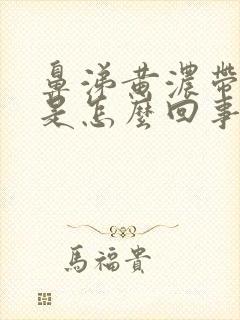 鼻涕黄濃帶
是怎麼回事
馬福貴